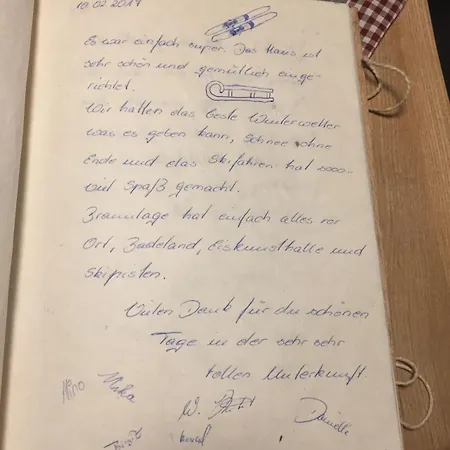 10.02.2017
Es war einfach super. Das Haus ist
sehr schön und gemütlich einge-
richtet.
Wir hatten das beste Winterwetter
was es geben kann, Schnee ohne
Ende und das Skifahren hat sooo..
viel Spaß gemacht.
Braunlage hat einfach alles vor
Ort, Badeland, Eiskunsthalle und
Skipisten.
Vielen Dank für die schönen
Tage in der sehr sehr
tollen Unterkunft.
Nino Mika
Danielle